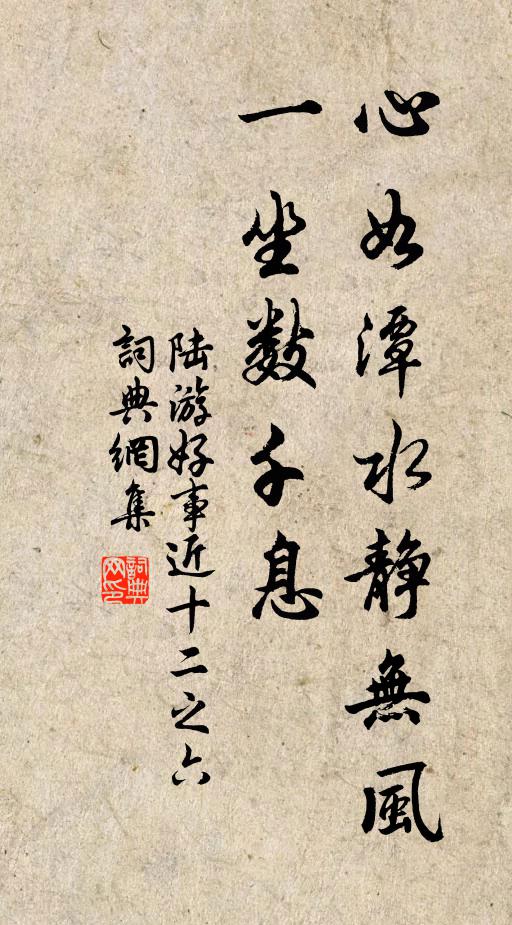 心如潭水靜無風
一坐數千息
陸游好事近十二之六
詞典網集
詞典網印